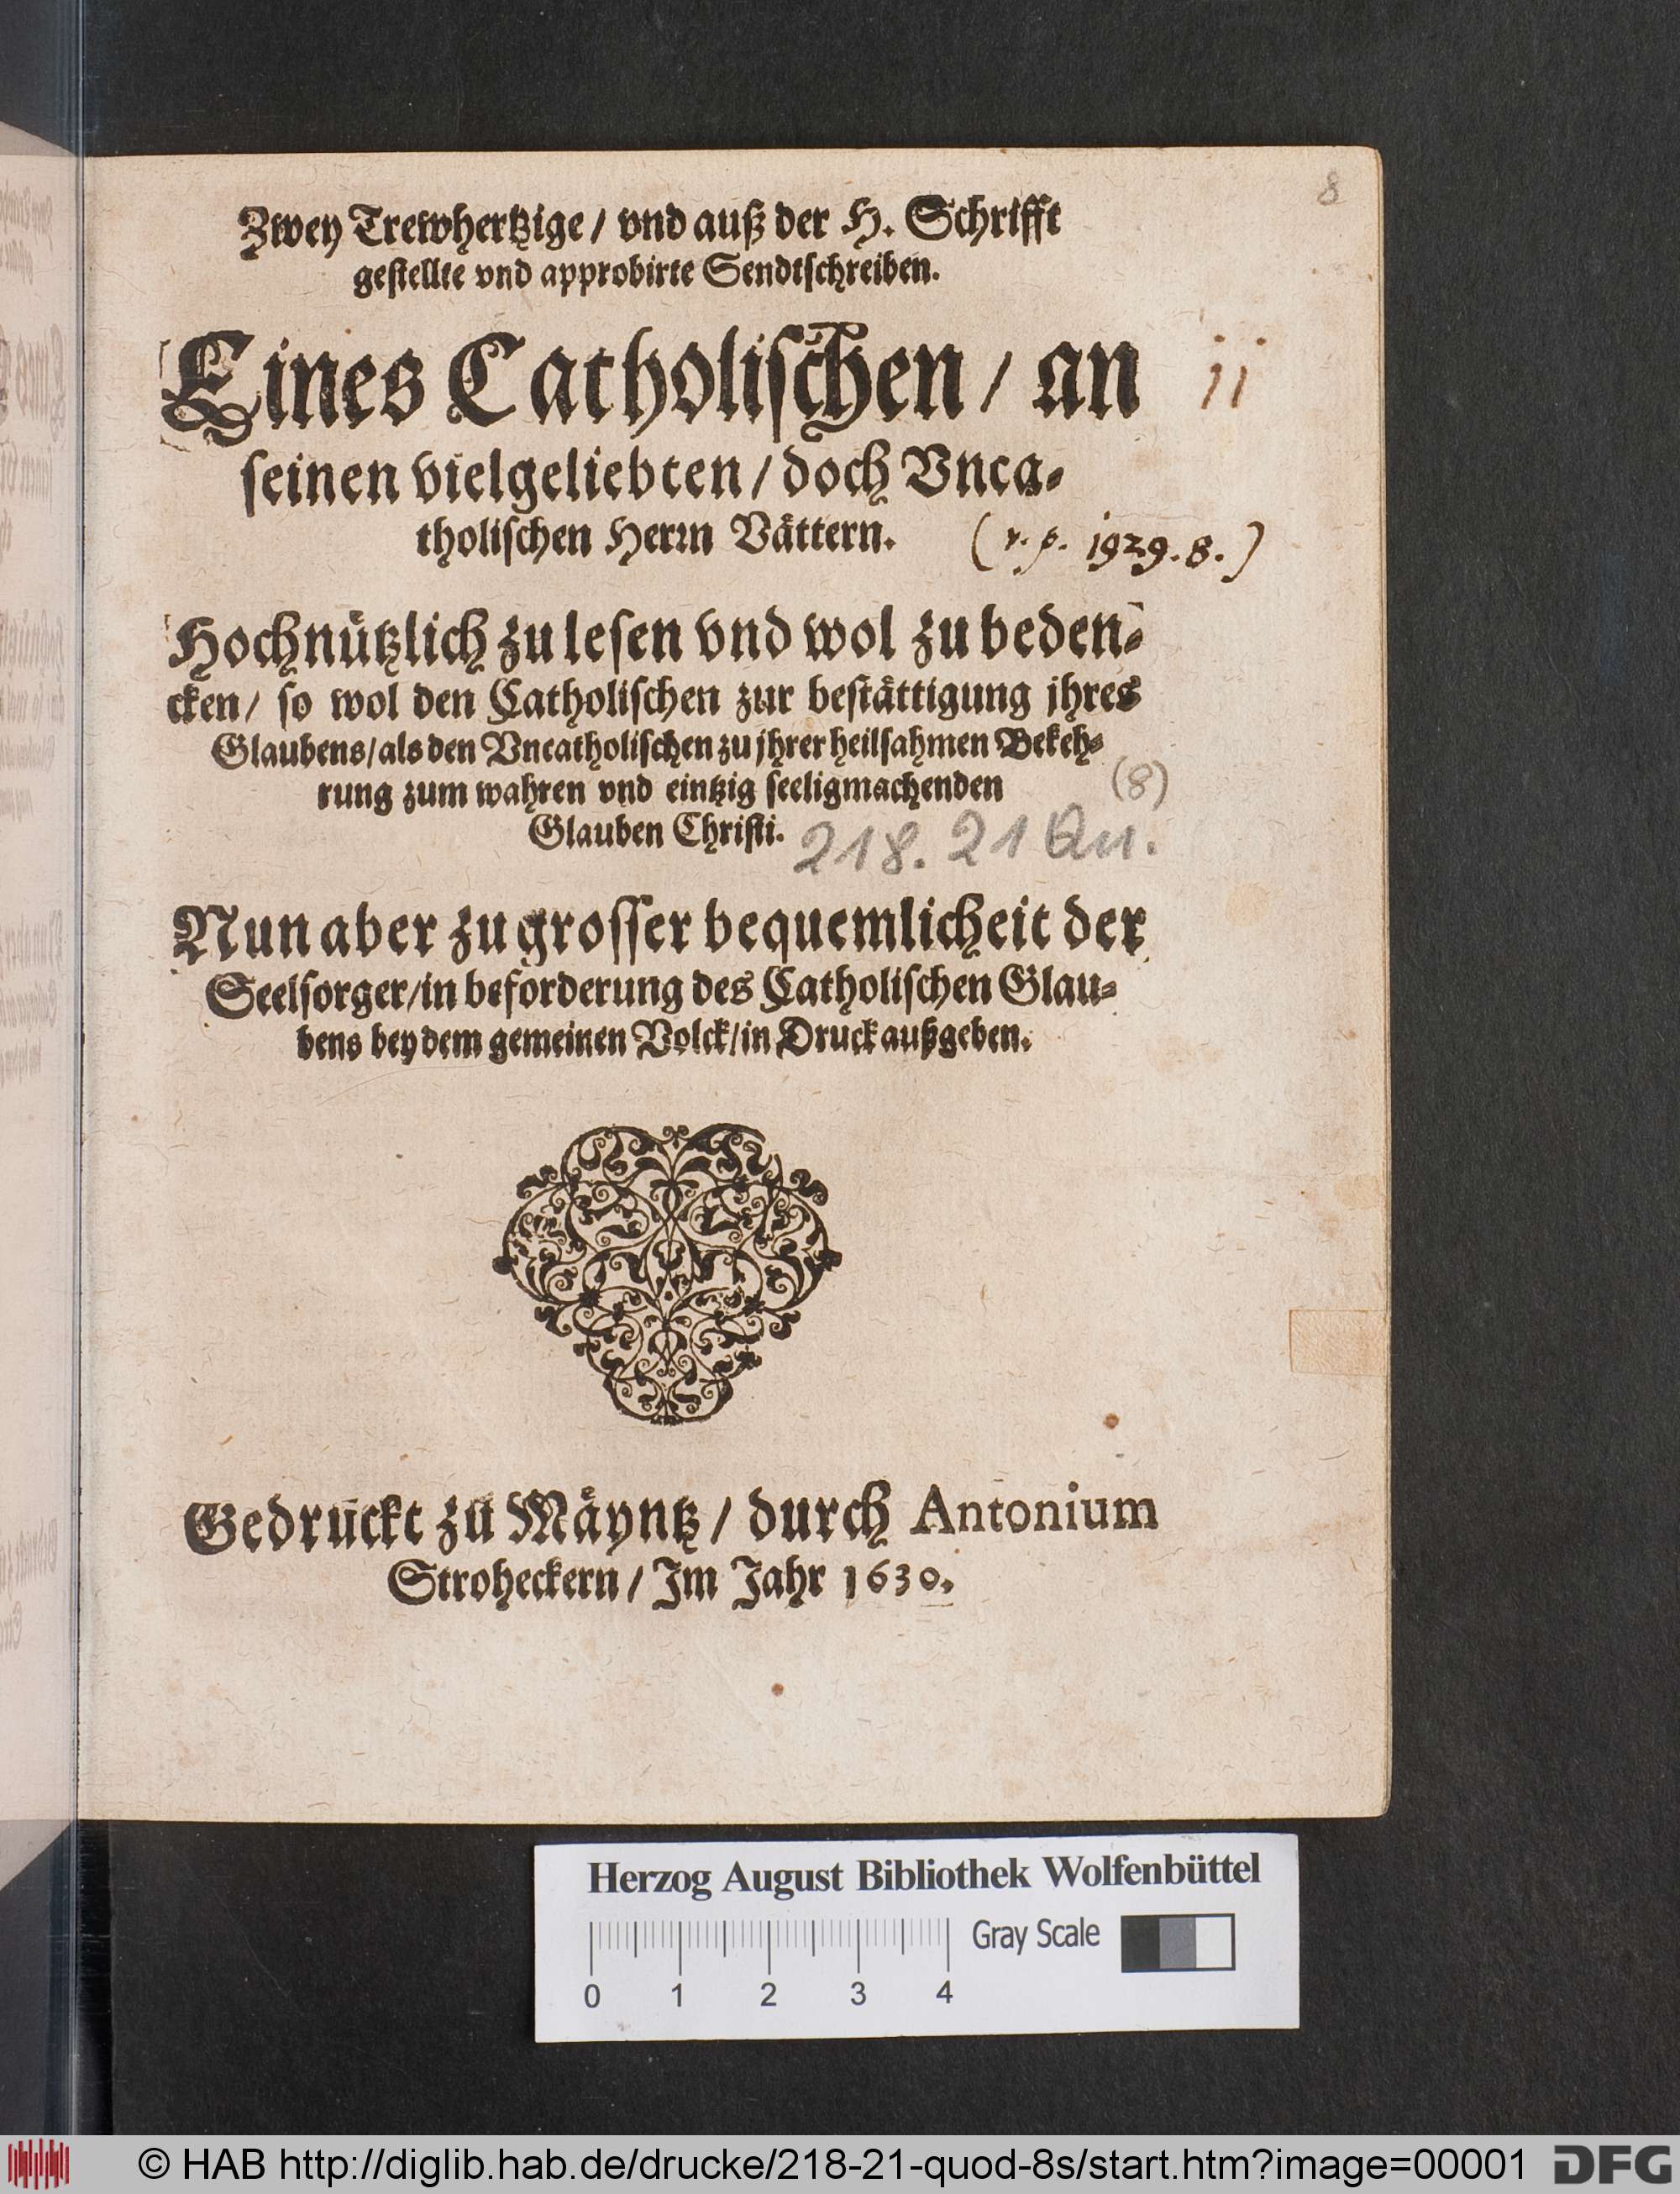 8
Zwey Trewhertzige / vnd auß der H. Schrifft
gestellte vnd approbirte Sendtschreiben.
Eines Catholischen / an
ii
seinen vielgeliebten / doch Vnca-
tholischen Herrn Vättern.
(r. p. 1929. 8.)
Hochnützlich zu lesen vnd wol zu beden-
cken / so wol den Catholischen zur bestättigung jhres
Glaubens / als den Vncatholischen zu jhrer heilsahmen Bekeh-
rung zum wahren vnd eintzig seeligmachenden
(8)
Glauben Christi.
218. 21 Qu.
Nun aber zu grosser bequemlicheit der
Seelsorger / in beforderung des Catholischen Glau-
bens bey dem gemeinen Volck / in Druck außgeben.
Gedruckt zu Mäyntz / durch Antonium
Stroheckern / Im Jahr 1630.
Herzog August Bibliothek Wolfenbüttel
Gray Scale
0 1 2 3 4
© HAB http://diglib.hab.de/drucke/218-21-quod-8s/start.htm?image=00001
DFG